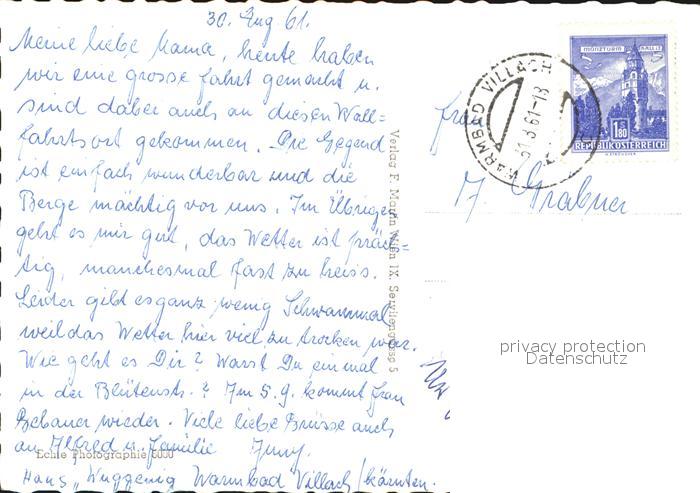 30. Aug 61.
Meine liebe Mama, heute haben
wir eine grosse Fahrt gemacht u.
sind dabei auch an diesen Wall=
fahrtsort gekommen. Die Gegend
ist einfach wunderbar und die
Berge mächtig vor uns. Im Übrigen
geht es mir gut, das Wetter ist präch=
tig, manchesmal fast zu heiss.
Leider gibt es ganz wenig Schwammerl
weil das Wetter hier viel zu trocken war.
Wie geht es Dir? Warst Du einmal
in der Blütenstr.? Am 5.9. kommt Frau
Gebauer wieder. Viele liebe Grüsse auch
an Alfred u. Familie
Echte Photographie 6050
Haus "Wuggenig Warmbad Villach/Kärnten.
Verlag F. Mörtl, Wien IX, Servitengasse 5
WARMBAD VILLACH
31.8.61-18
MÜNZTURM HALL I.T.
S 1.80
REPUBLIK ÖSTERREICH
Frau
M. Grabner
privacy protection
Datenschutz